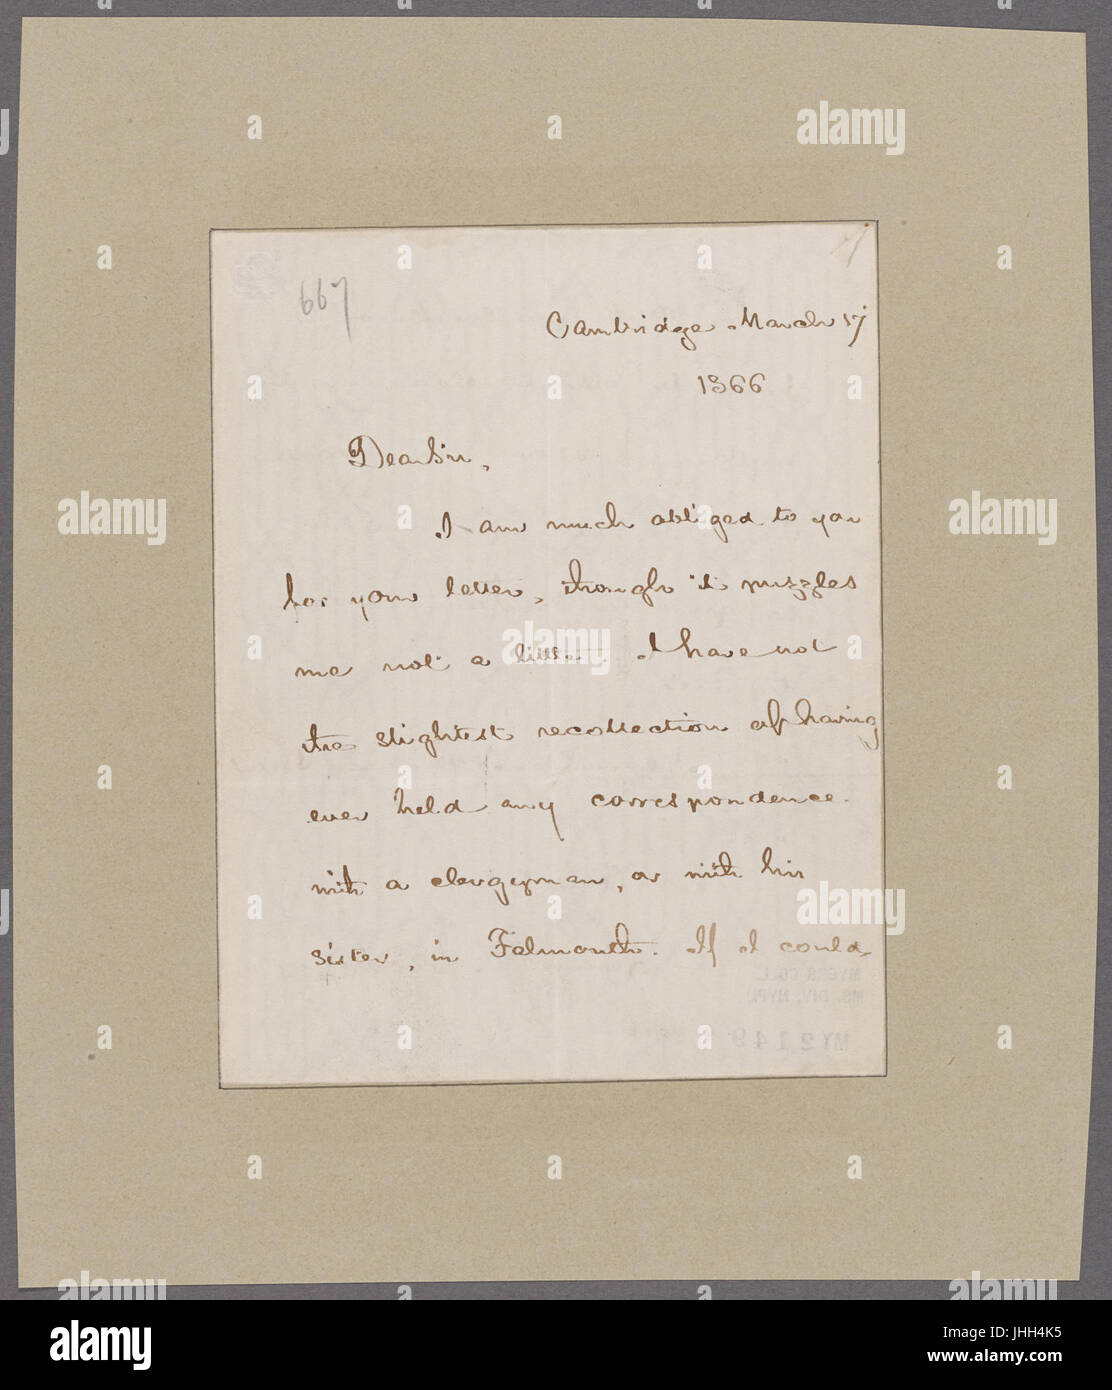 667
Cambridge March 17
1866
Dear Sir,
I am much obliged to you
for your letter, though it puzzles
me not a little. I have not
the slightest recollection of having
ever held any correspondence
with a clergyman, or with his
sister, in Falmouth. If I could
MYERS COLL.
MS. DIV. NYPL
MY2149
alamy
alamy stock photo
JHH4K5
www.alamy.com